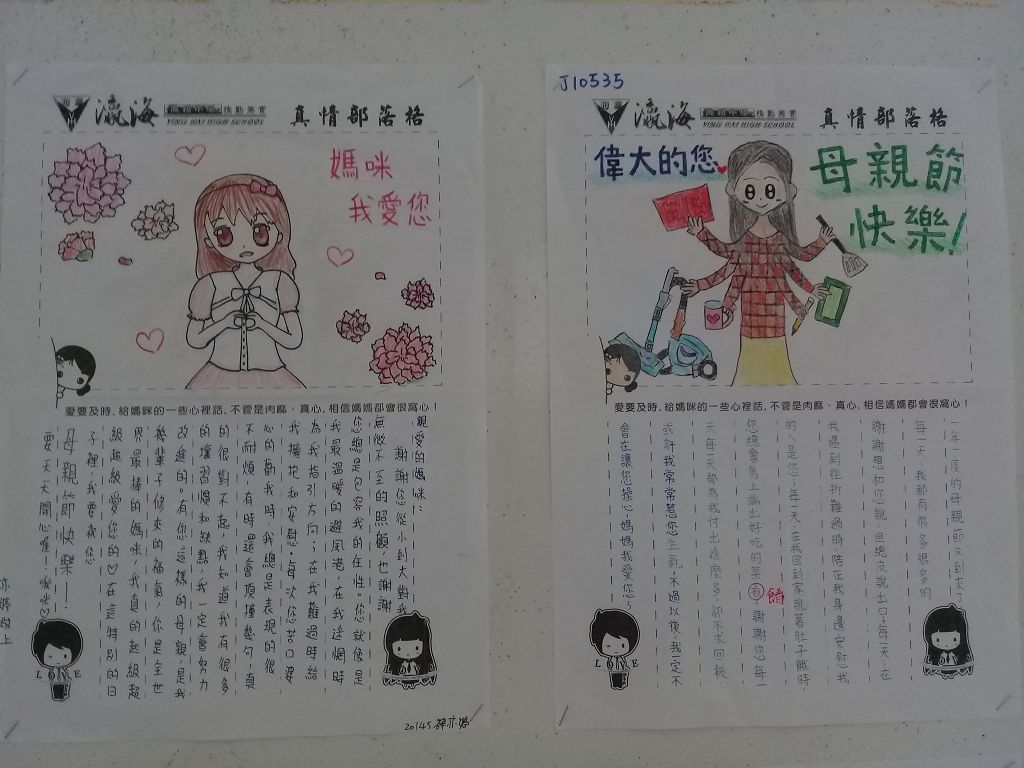 瀛海
YING HAI HIGH SCHOOL
真情部落格
媽咪
我愛您
愛要及時,給媽咪的一些心裡話,不管是肉麻、真心,相信媽媽都會很窩心!
親愛的媽咪:
謝謝您從小到大對我
無微不至的照顧,也謝謝
您總是包容我的任性。您就像是
我最溫暖的避風港,在我迷惘時
為我指引方向;在我難過時給
我擁抱和安慰。每次您苦口婆
心的勸我時,我總是表現的很
不耐煩,有時還會頂撞幾句,真
的很對不起,我知道我有很多
的壞習慣和缺點,我一定會努力
改進的。有您這樣的母親,是我
幾輩子修來的福氣,你是全世
界最棒的媽咪,我真的超級超
級超級愛您的♡在這特別的日
子裡,我要祝您
母親節快樂
要天天開心喔!
LOVE
20145
J10535
瀛海
YING HAI HIGH SCHOOL
真情部落格
偉大的您
母親節
快樂!
愛要及時,給媽咪的一些心裡話,不管是肉麻、真心,相信媽媽都會很窩心!
一年一度的母親節又到來了
每一天,我都有很多很多的
謝謝想和您說,但總沒說出口,每一天,在
我遇到挫折難過時,陪在我身邊安慰我
的人是您;每一天,在我回到家說著肚子餓時,
您總會馬上端出好吃的菜 謝謝您每一
餚
天每一天都為我付出這麼多,卻不求回報,
或許我常常惹您生氣,不過以後,我一定不
會在讓您操心,媽媽我愛您~
LOVE